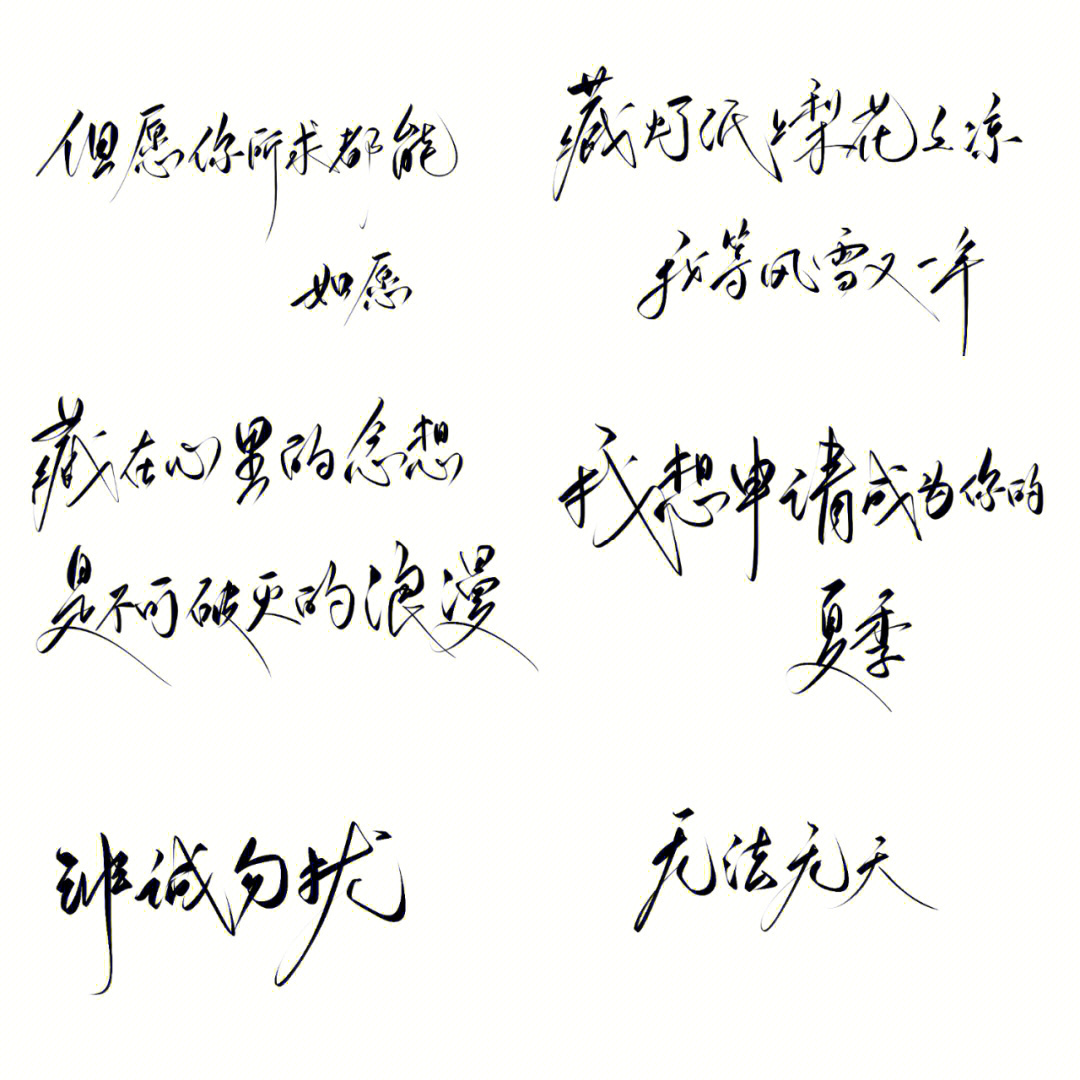 但愿你所求都能
如愿
藏纸上梨花凉
我等风雪又一年
藏在心里的念想
是不可破灭的浪漫
我想申请成为你的
夏季
非诚勿扰
无法无天